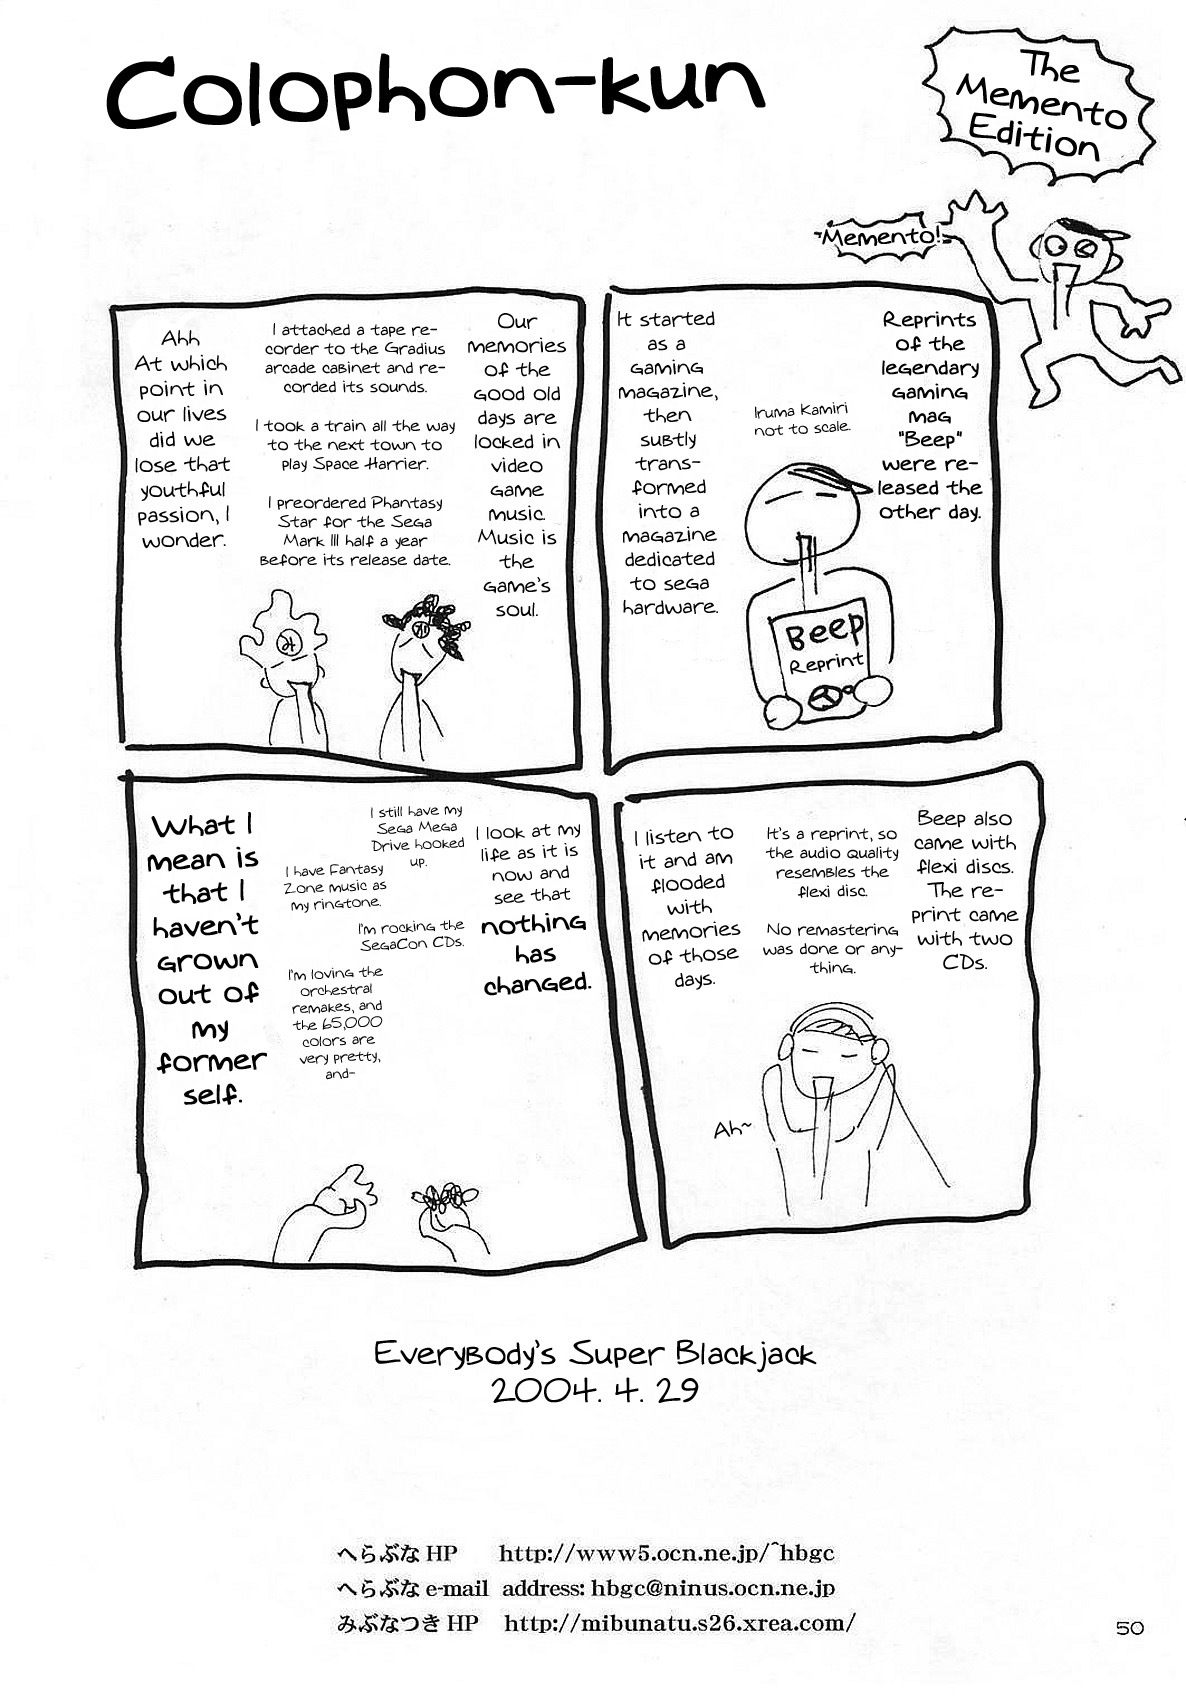 Colophon-kun
The
Memento
Edition
~Memento!~
Reprints
of the
legendary
gaming
mag
"Beep"
were re-
leased the
other day.
Iruma Kamiri
not to scale.
It started
as a
gaming
magazine,
then
subtly
trans-
formed
into a
magazine
dedicated
to sega
hardware.
Beep
Reprint
Beep also
came with
flexi discs.
The re-
print came
with two
CDs.
It's a reprint, so
the audio quality
resembles the
flexi disc.
No remastering
was done or any-
thing.
I listen to
it and am
flooded
with
memories
of those
days.
Ah~
Our
memories
of the
good old
days are
locked in
video
game
music.
Music is
the
game's
soul.
I attached a tape re-
corder to the Gradius
arcade cabinet and re-
corded its sounds.
I took a train all the way
to the next town to
play Space Harrier.
I preordered Phantasy
Star for the Sega
Mark III half a year
before its release date.
Ahh
At which
point in
our lives
did we
lose that
youthful
passion, I
wonder.
I look at my
life as it is
now and
see that
nothing
has
changed.
I still have my
Sega Mega
Drive hooked
up.
I have Fantasy
Zone music as
my ringtone.
I'm rocking the
SegaCon CDs.
I'm loving the
orchestral
remakes, and
the 65,000
colors are
very pretty,
and-
What I
mean is
that I
haven't
grown
out of
my
former
self.
Everybody's Super Blackjack
2004. 4. 29
へらぶな HP http://www5.ocn.ne.jp/~hbgc
へらぶな e-mail address: hbgc@ninus.ocn.ne.jp
みぶなつき HP http://mibunatu.s26.xrea.com/
50